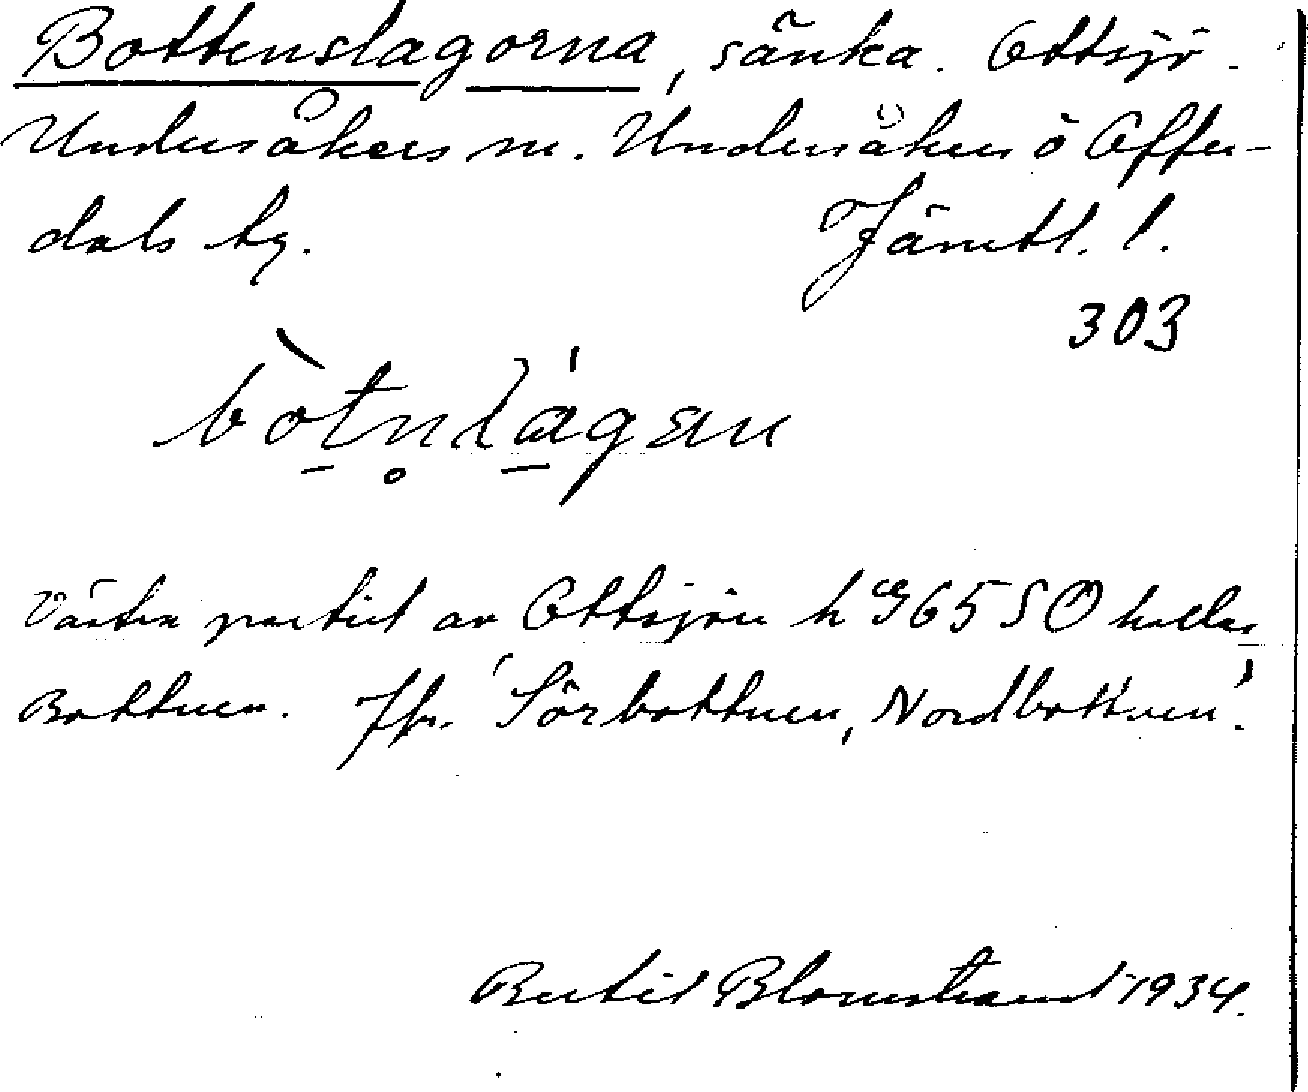 Bottenslagorna, sänka. Ottsjö.
Undersåkers sn. Undersåkers o Offer-
dals tg. Jämtl. l.
303
bòtnlágan
Västra partiet av Ottsjön h 965 SO kallas
Bottnen. Jfr. Sörbottnen, Nordbottnen.
Bertil Blomstrand 1934.